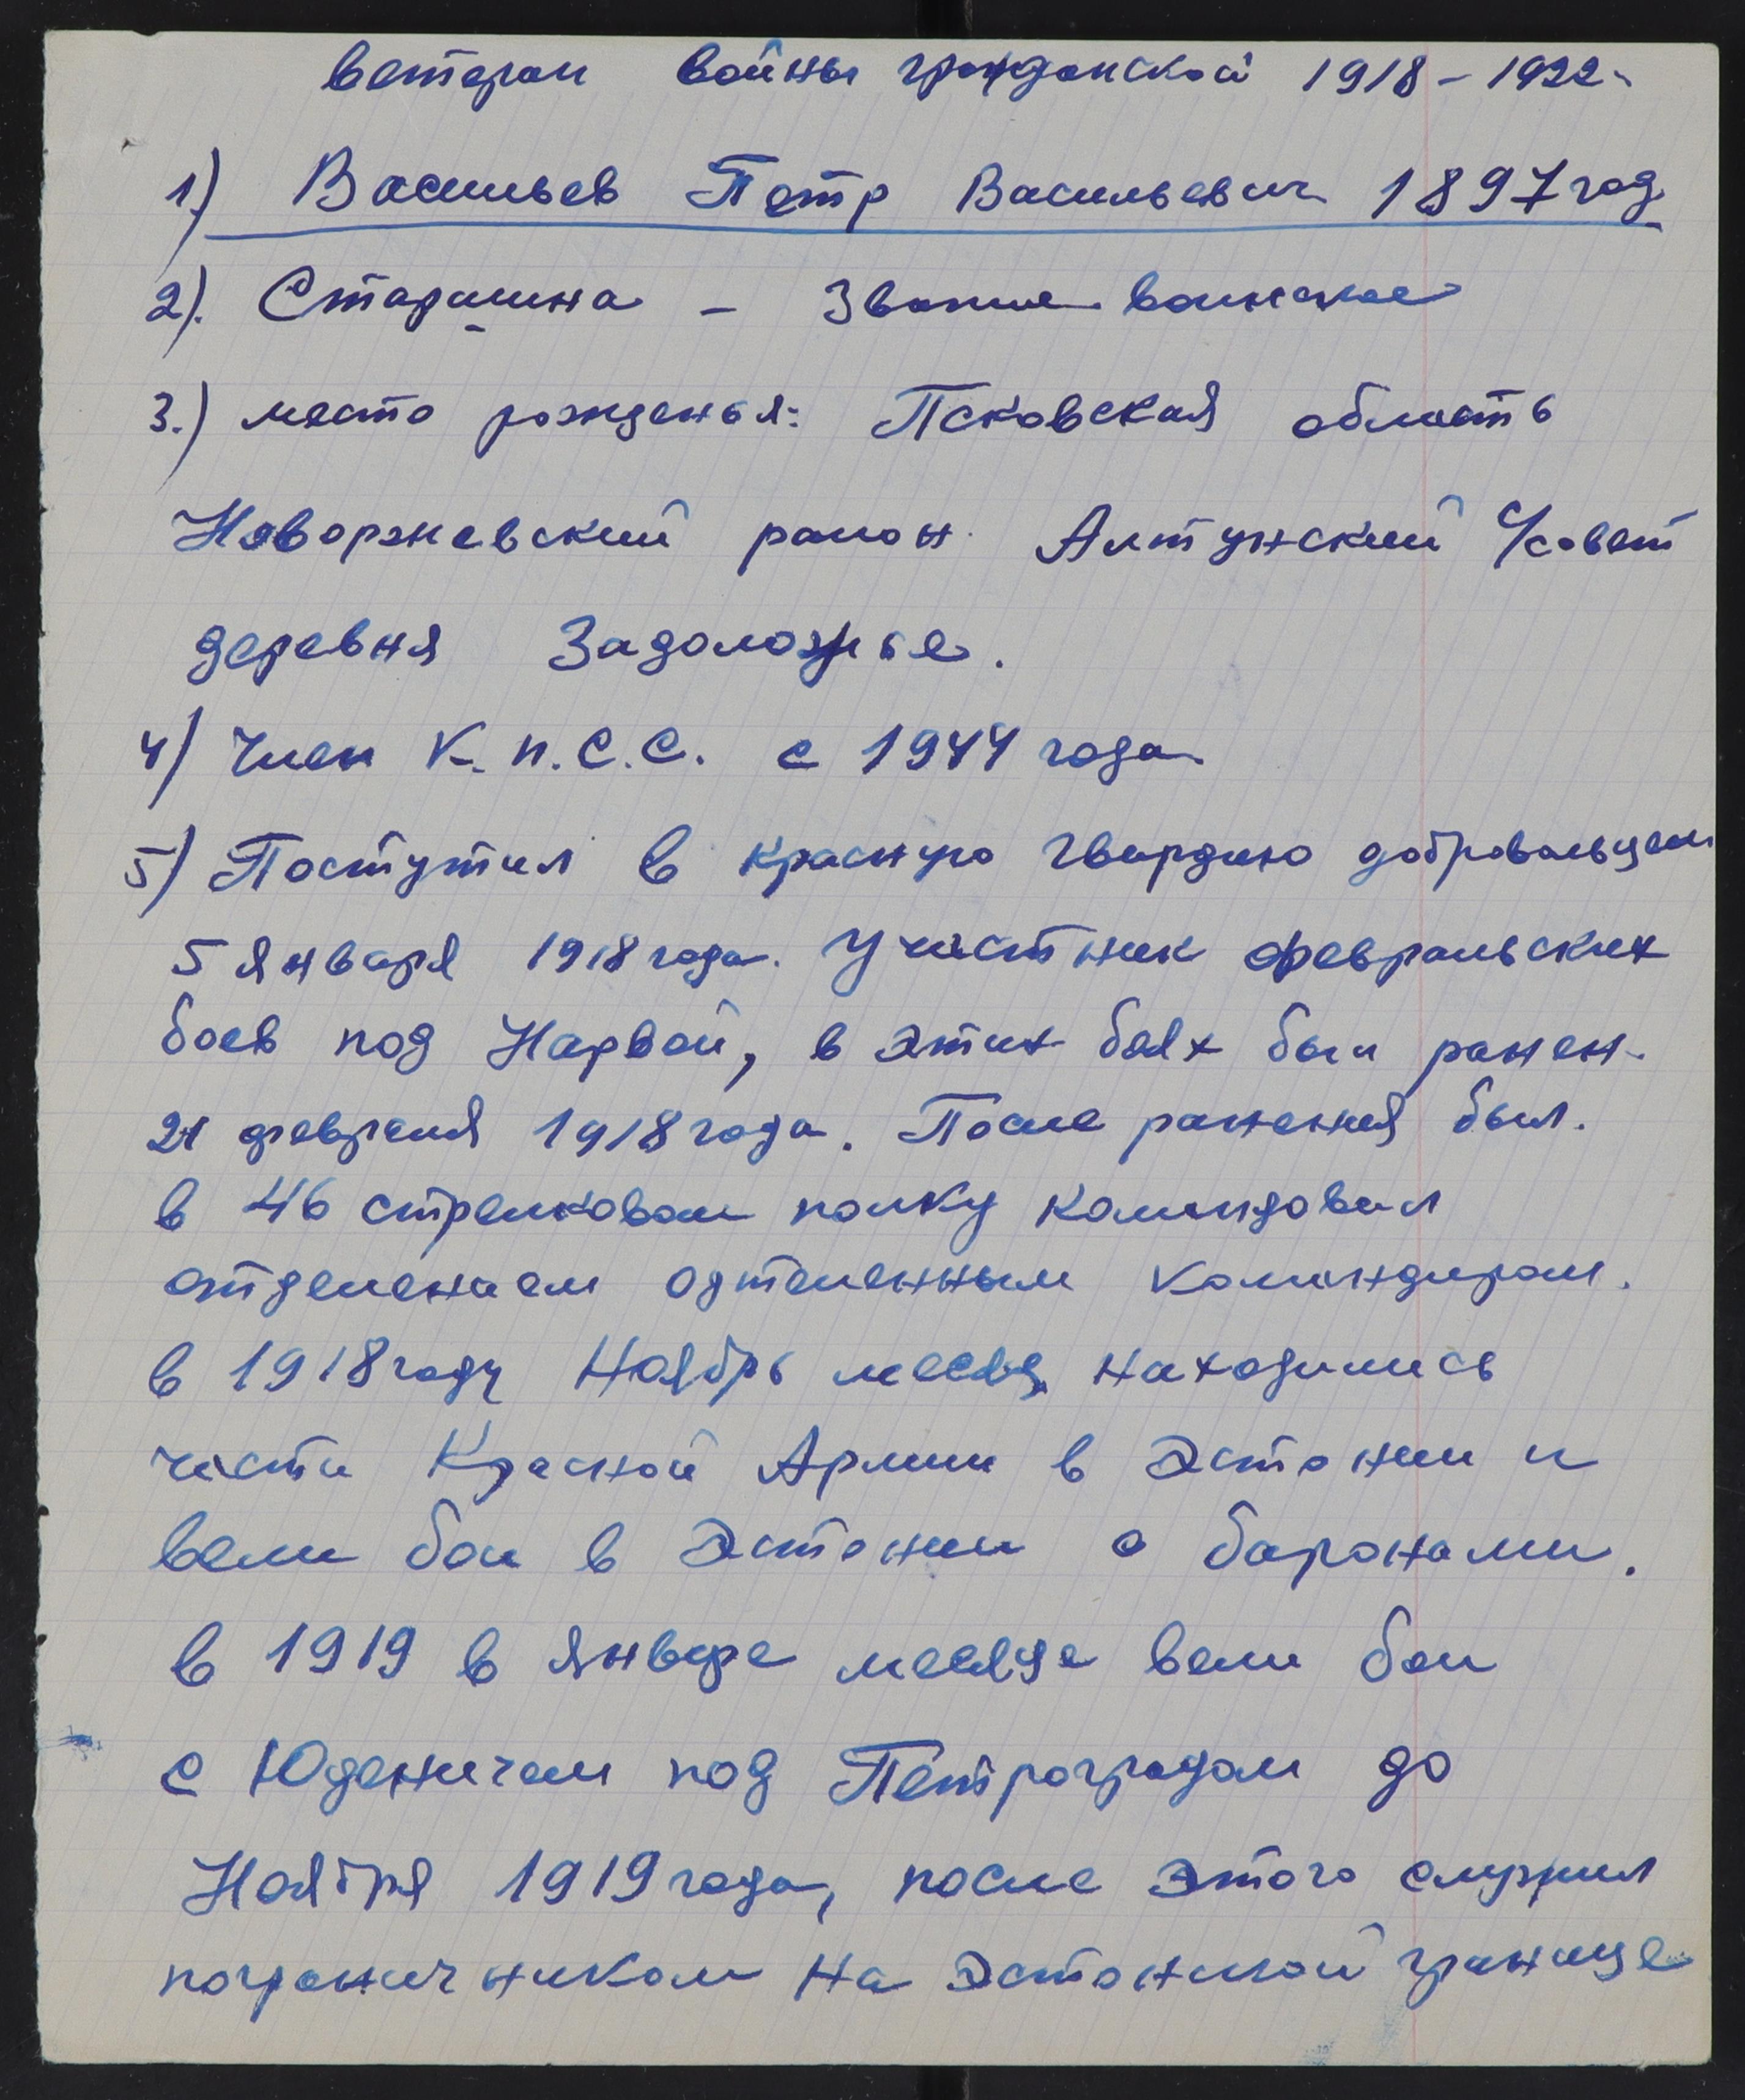 ветеран войны гражданской 1918-1922.
1) Васильев Петр Васильевич 1897 год
2). Старшина - Звание воинское
3.) место рожденья: Псковская область
Новоржевский район Алтунский с/совет
деревня Задоложье.
4) Член К.П.С.С. с 1944 года
5) Поступил в красную гвардию добровольцем
5 января 1918 года. Участник февральских
боев под Нарвой, в этих боях был ранен.
21 февраля 1918 года. После ранения был.
в 46 стрелковом полку командовал
отделением одтеленным командиром.
в 1918 году Ноябрь месяц находились
части Красной Армии в Эстонии и
вели бои в Эстонии с баронами.
в 1919 в январе месяце вели бои
с Юденичем под Петроградом до
Ноября 1919 года, после этого служил
пограничником на Эстонской границе